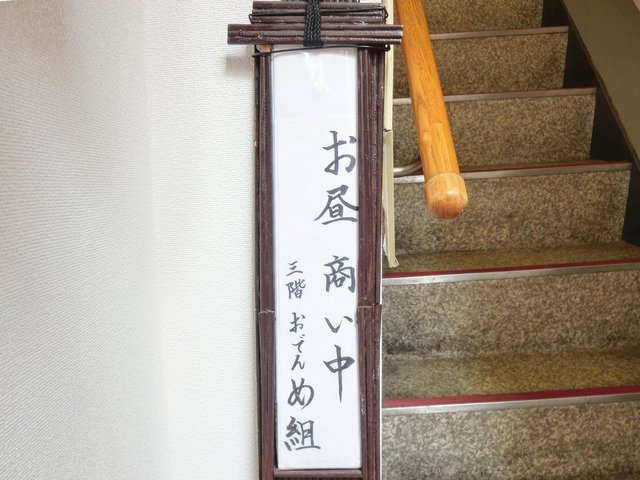 お昼 商い中
三階 おでん め組